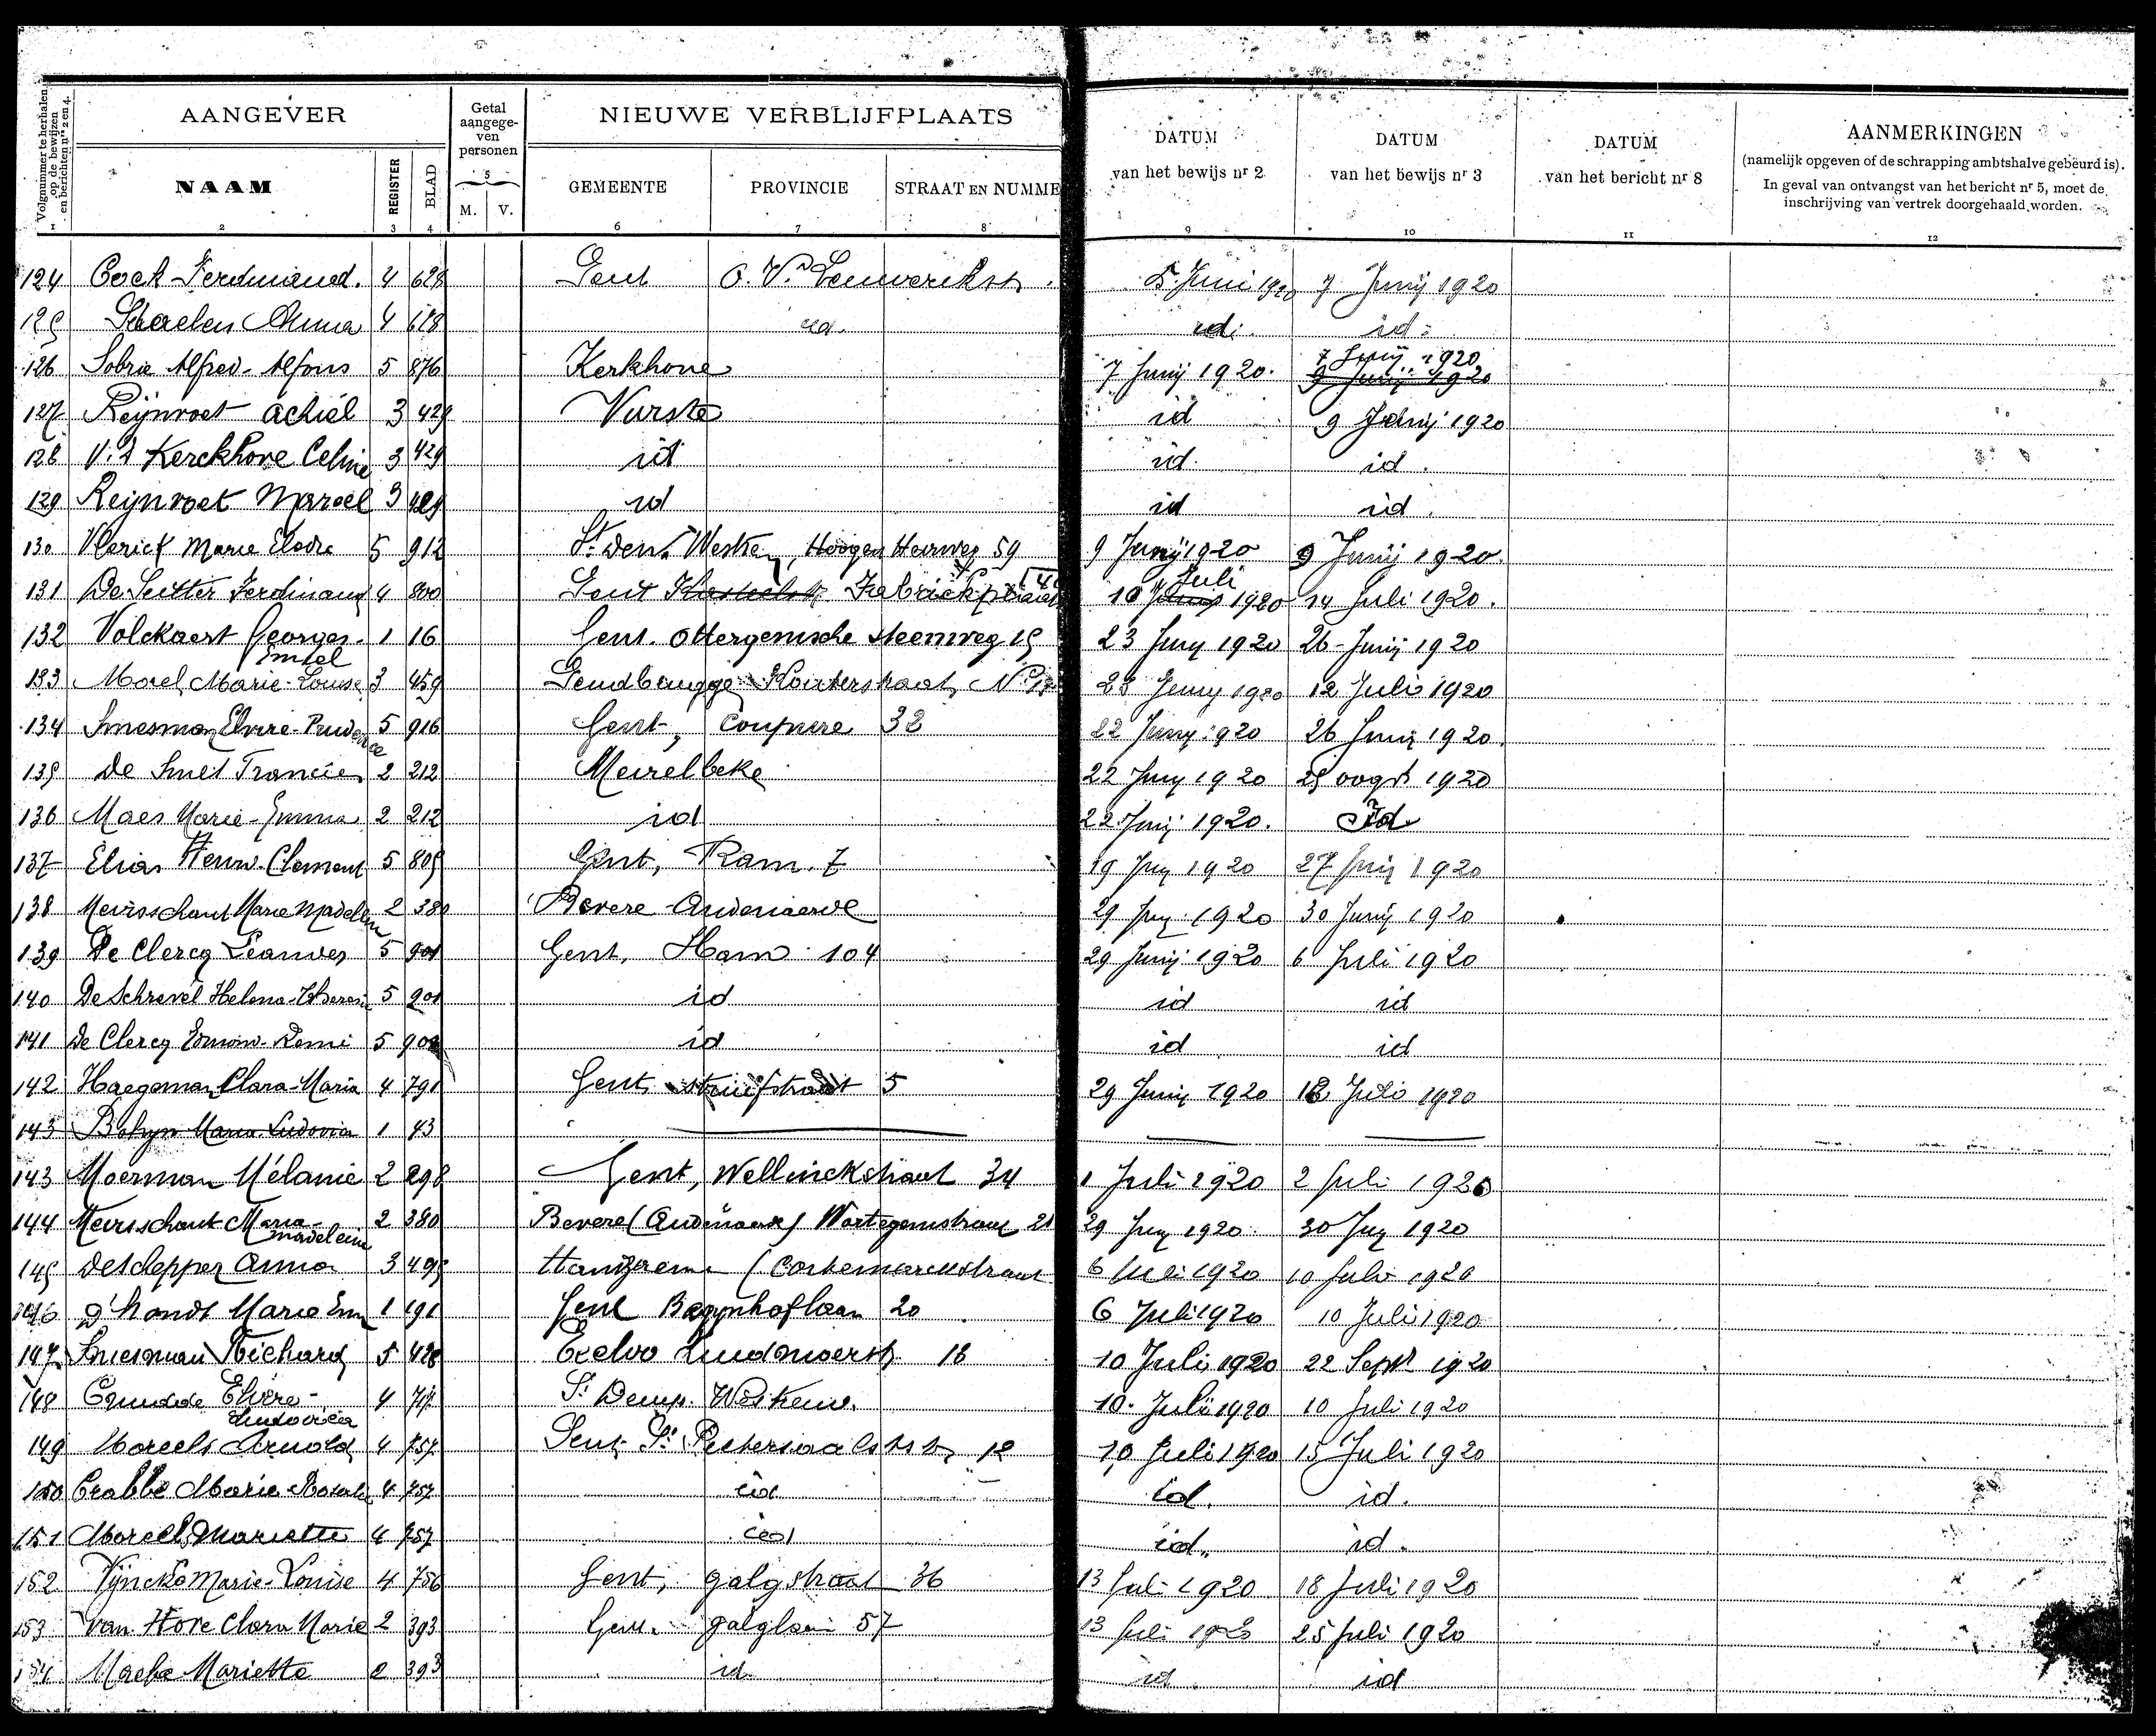 Volgnummer te herhalen op de bewijzen en berichten nrs 2 en 4.
AANGEVER
Getal aangege-ven personen
NIEUWE VERBLIJFPLAATS
DATUM van het bewijs nr 2
DATUM van het bewijs nr 3
DATUM van het bericht nr 8
AANMERKINGEN
(namelijk opgeven of de schrapping ambtshalve gebeurd is).
In geval van ontvangst van het bericht nr 5, moet de inschrijving van vertrek doorgehaald worden.
NAAM REGISTER BLAD M. V. GEMEENTE PROVINCIE STRAAT EN NUMME
1 2 3 4 5 6 7 8 9 10 11 12
124 Cock Ferdinand. 4 628 Gent O. Vl. Leeuwerikstr. 5 Juni 1920 7 Junij 1920
125 Anna 4 628 id. id. id.
126 Sobrie Alfred-Alfons 5 876 Kerkhove 7 Junij 1920. 7 Junij 1920
127 Reijnvoet Achiel 3 429 Vurste id 9 Junij 1920
128 V. d Kerckhove Celine 3 429 id id. id.
129 Reijnvoet Marcel 3 429 id id id.
130 Vlerick Marie Elodie 5 912 St. Den. Westrem, Hoogen Heirweg 59 9 Junij 1920 9 Junij 1920.
131 De Sutter Ferdinand 4 800 Gent 10 Juli 1920 14 Juli 1920.
132 Volckaert Georges- 1 16 Gent. Ottergemsche steenweg 15 23 Juny 1920 26 Junij 1920
Emiel
133 Morel Marie-Louise 3 459 Gendbrugge Kouterstraat, No 23 Juny 1920 12 Juli 1920
134 Smesman Elvire-Prudence 5 916 Gent, Coupure 32 22 Juny 1920 26 Junij 1920.
135 De Smet Francies 2 212 Meirelbeke 22 Juny 1920 25 oogst 1920
136 Maes Marie-Emma 2 212 id 22 Junij 1920. Id
137 Elias Henri-Clement 5 805 Gent, Ram. 7 19 Juny 1920 27 Junij 1920
138 Meirsschaut Marie Madelein 2 380 Bevere Audenaerde 29 Juny 1920 30 Junij 1920
139 De Clercq Leander 5 901 Gent, Ham 104 29 Junij 1920 6 Juli 1920
140 De Schrevel Helena-Theresi 5 901 id id id
141 De Clercq Edmond-Remi 5 901 id id id
142 Haegeman Clara-Maria 4 791 Gent 5 29 Junij 1920 12 Juli 1920
143 Maria Ludovica 1 43
143 Moerman Mélanie 2 298 Gent, Wellinckstraat 34 1 Juli 1920 2 Juli 1920
144 Meirsschaut Maria- 2 380 Bevere (Audenaarde) Wortegemstraat 21 29 Juny 1920. 30 Juny 1920
Madeleine
145 De Schepper Anna 3 495 Hantzaeme (Cortemarckstraat 6 Juli 1920 10 Juli 1920
146 D'hondt Maria Em 1 191 Gent Begynhoflaan 20 6 Juli 1920 10 Juli 1920
147 Smesman Richard 5 428 Eecloo Zuidmoerstr 18 10 Juli 1920 22 Sept 1920
148 Elvire- 4 St Denys. Westrem. 10 Juli 1920 10 Juli 1920
Ludovica
149 Morcels Arnold 4 757 Gent St. Pietersaalststr. 12 10 Juli 1920 15 Juli 1920
150 Crabbe Maria Rosali 4 757 id id. id.
151 Morcels Mariette 4 757 id id. id.
152 Vijncke Marie-Louise 4 756 Gent, galgstraat 36 13 Juli 1920 18 Juli 1920
153 Van Hove Clara Marie 2 393 Gent. galglaan 57 13 Juli 1920 25 Juli 1920
154 Mariette 2 393 id id id